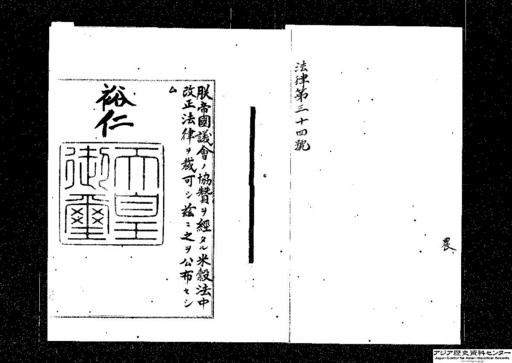 法律第三十四號
農
朕帝國議會ノ協贊ヲ經タル米穀法中
改正法律ヲ裁可シ茲ニ之ヲ公布セシ
ム
裕仁
天皇
御璽
アジア歴史資料センター
Japan Center for Asian Historical Records